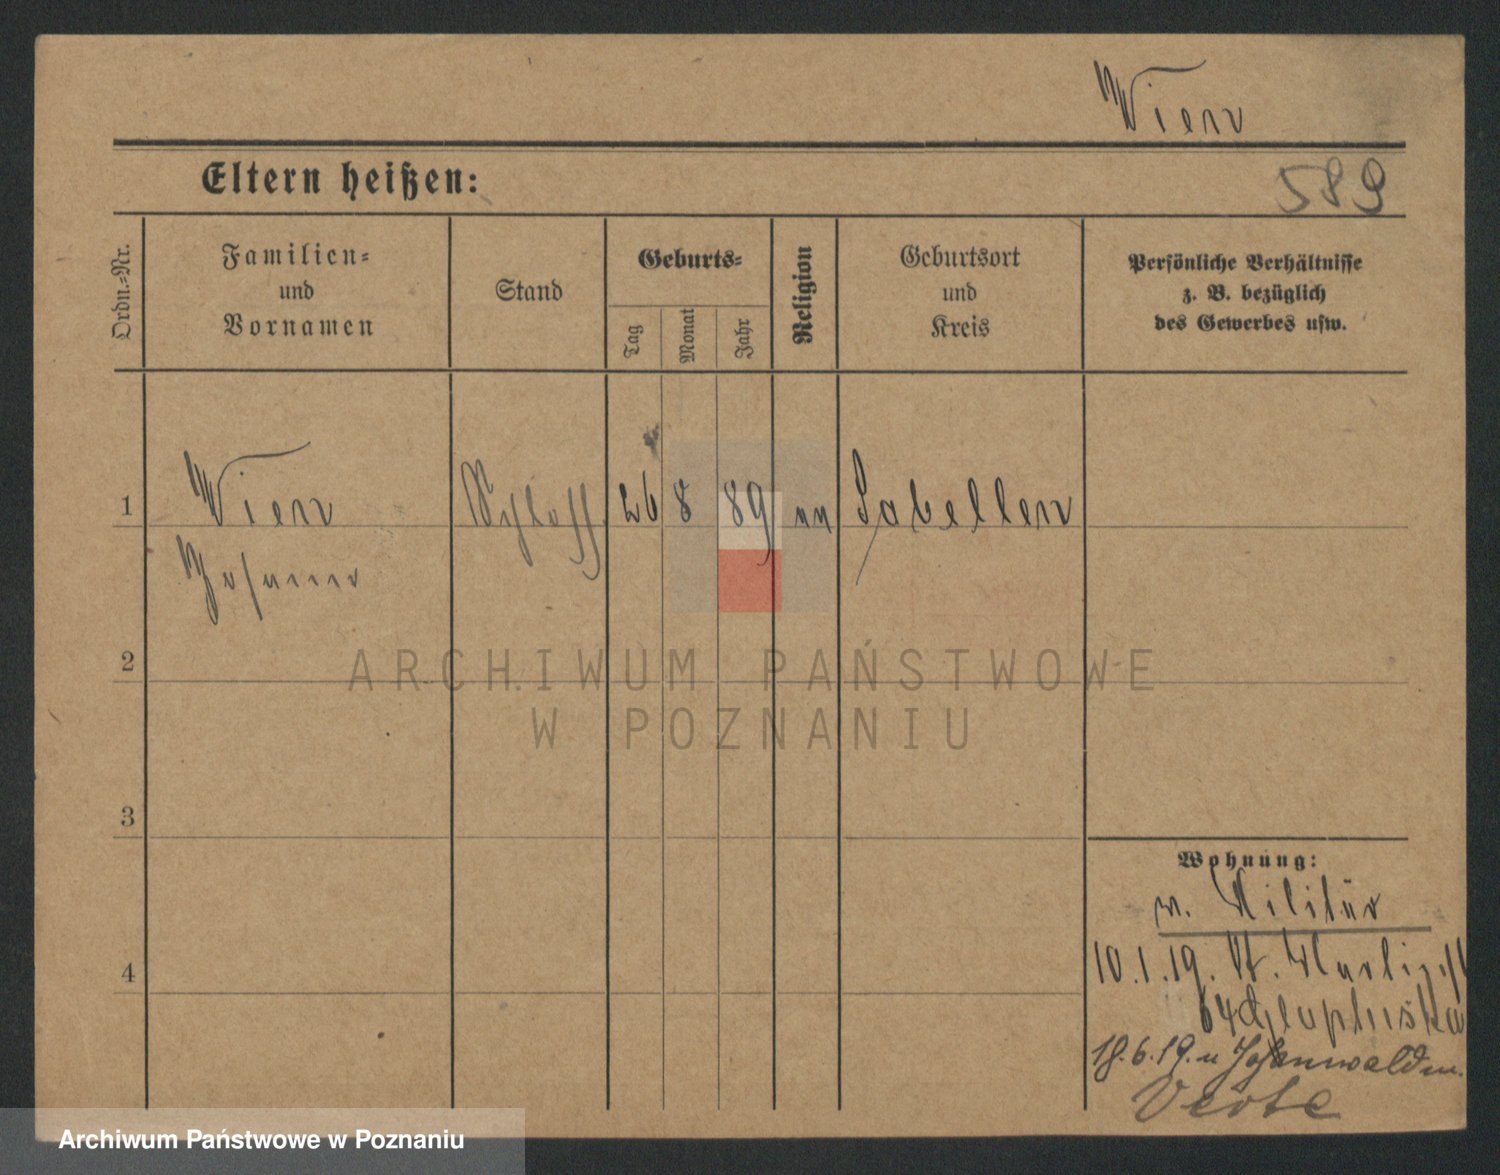 Wien
Eltern heißen:
589
Ordn.-Nr.
Familien-
und
Vornamen
Stand
Geburts-
Tag
Monat
Jahr
Religion
Geburtsort
und
Kreis
Persönliche Verhältnisse
z. B. bezüglich
des Gewerbes usw.
1
Wien
Schloss.
26
8
89
Johann
2
ARCHIWUM PAŃSTWOWE
W POZNANIU
3
Wohnung:
v. Militär
10.1.19. St.
4
64
18.6.19. n Johannwald
Archiwum Państwowe w Poznaniu